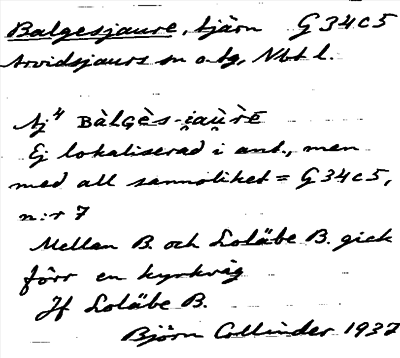 Balgesjaure, tjärn G34c5
Arvidsjaurs sn o. tg, Nbt l.
Aj⁴ BàLGès-i̯au̯rɛ̄
Ej lokaliserad i ant., men
med all sannolikhet = G34c5,
n:r 7
Mellan B. och Loläbe B. gick
förr en kyrkväg
Jf Loläbe B.
Björn Collinder 1937